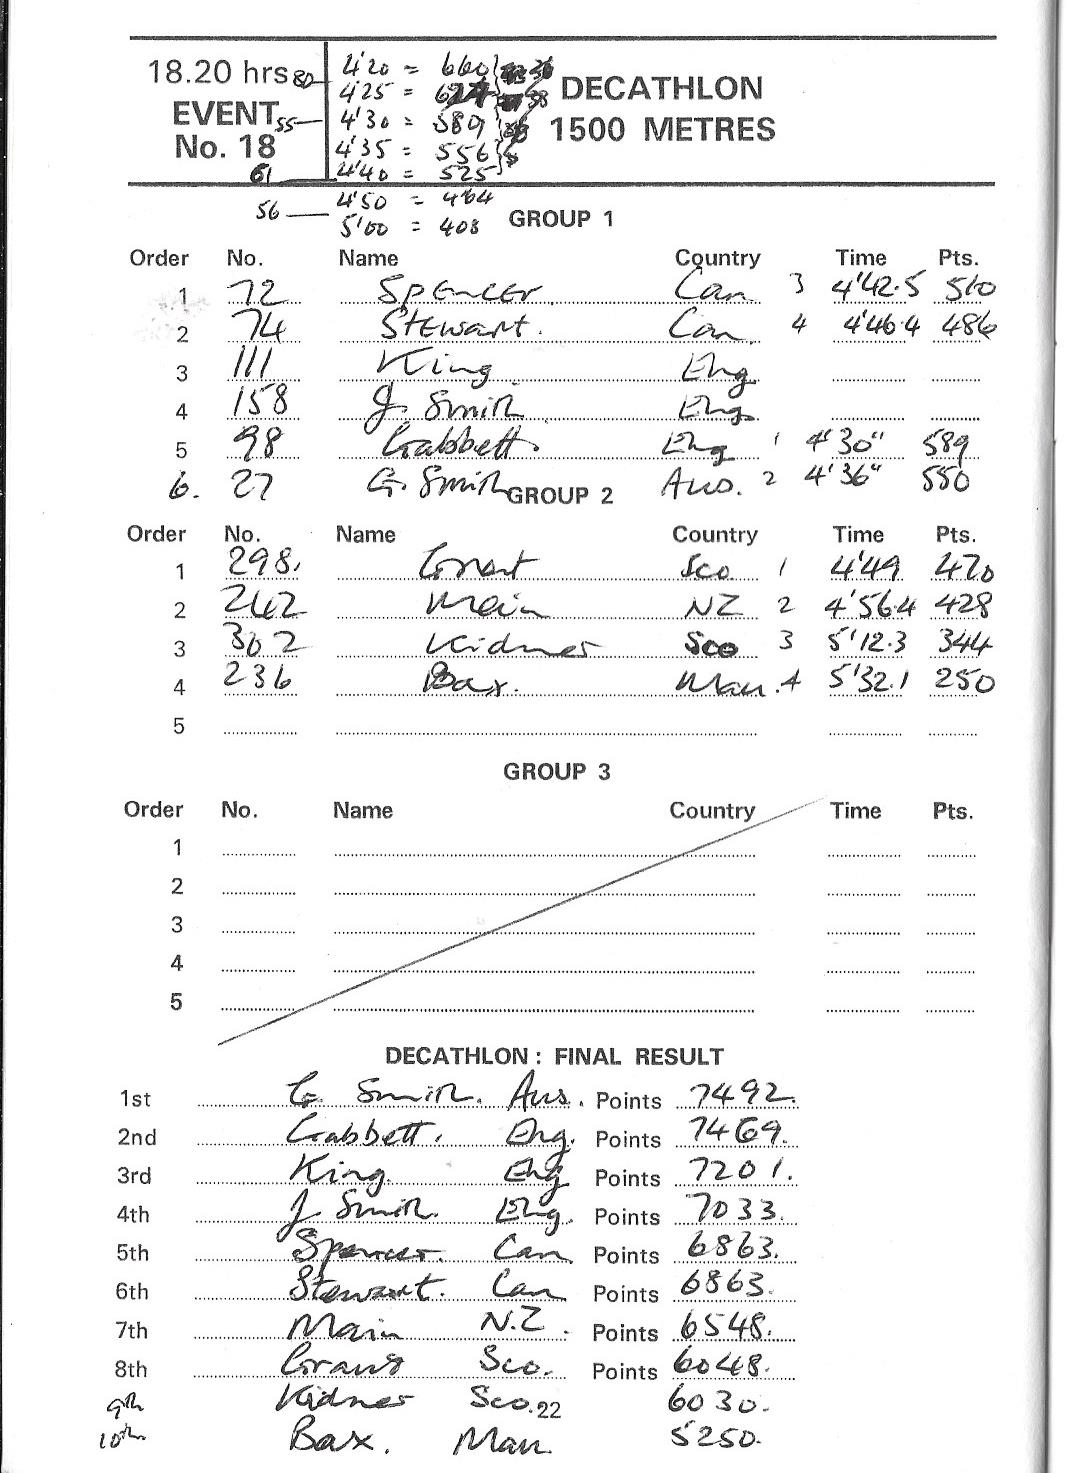 18.20 hrs 80 4'20 = 660
4'25 =
EVENT 55 4'30 = 589
No. 18 4'35 = 556
61 4'40 = 525
DECATHLON
1500 METRES
56 4'50 = 464
5'00 = 403
GROUP 1
Order No. Name Country Time Pts.
1 72 Spencer Can 3 4'42.5 510
2 74 Stewart. Can 4 4'46.4 486
3 111 King Eng
4 158 J. Smith Eng
5 98 Gabbett. Eng 1 4'30" 589
6. 27 G. Smith Aus. 2 4'36" 550
GROUP 2
Order No. Name Country Time Pts.
1 298. Grant Sco 1 4'49 470
2 242 Main NZ 2 4'56.4 428
3 302 Kidner Sco 3 5'12.3 344
4 236 Bax. Man. 4 5'32.1 250
5
GROUP 3
Order No. Name Country Time Pts.
1
2
3
4
5
DECATHLON : FINAL RESULT
1st G. Smith. Aus. Points 7492.
2nd Gabbett. Eng. Points 7469.
3rd King. Eng Points 7201.
4th J Smith. Eng. Points 7033.
5th Spencer. Can Points 6863.
6th Stewart. Can Points 6863.
7th Main N.Z. Points 6548.
8th Grant Sco. Points 6048.
9th Kidner Sco. 22 6030.
10th Bax. Man 5250.